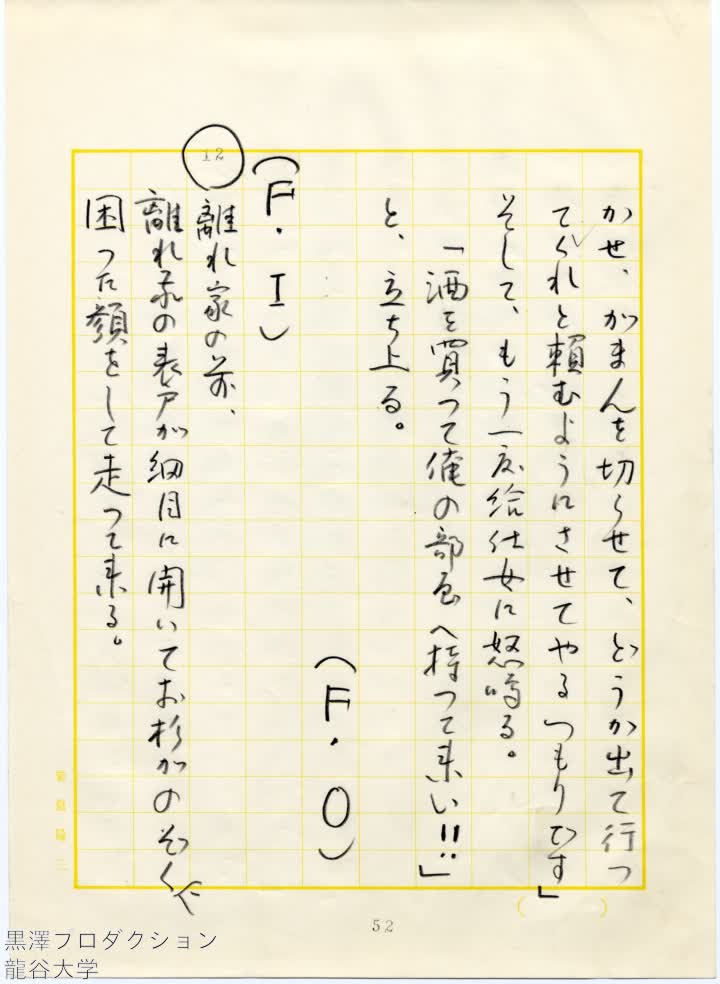 かせ、がまんを切らせて、どうか出て行つ
てくれと頼むようにさせてやるつもりです」
そして、もう一度給仕女に怒鳴る。
「酒を買つて俺の部屋へ持つて来い!!」
と、立ち上る。
(F.O)
(F.I)
12
離れ家の前、
離れ家の表戸が細目に開いてお杉がのぞく
困つた顔をして走つて来る。
52
黒澤プロダクション
龍谷大学